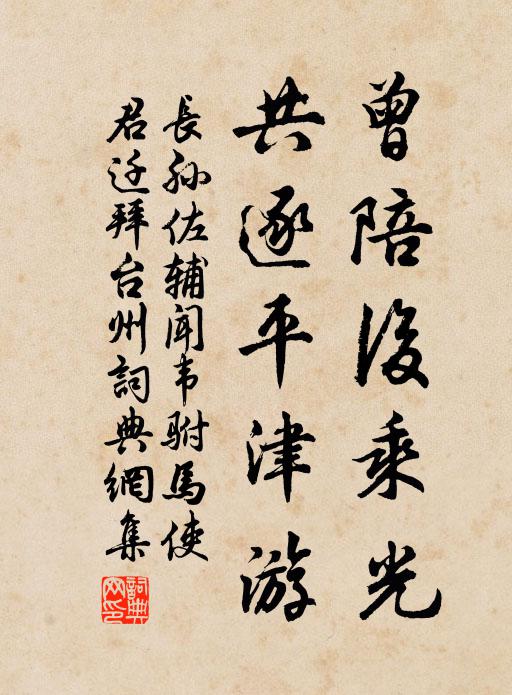 曾陪後乘光
共逐平津游
長孫佐輔聞韦駙馬使
君迁拜台州詞典網集
詞典
网印